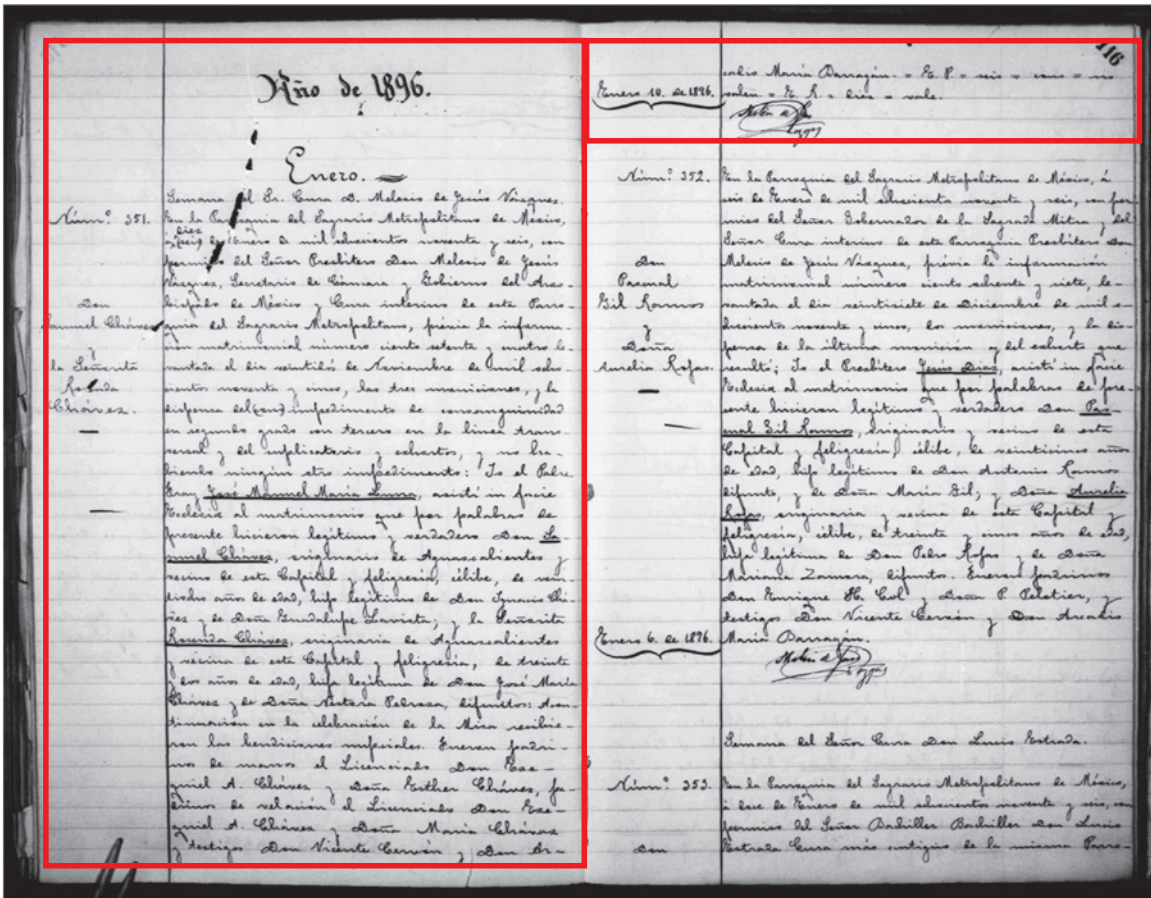 Año de 1896.
Enero.
Semana del Sr. Cura D. Melesio de Jesús Vázquez.
Núm.º 351.
En la Parroquia del Sagrario Metropolitano de México,
diez
á (seis) de Enero de mil ochocientos noventa y seis, con
permiso del Señor Presbítero Don Melesio de Jesús
Vázquez, Secretario de Cámara y Gobierno del Arzo-
Don
bispado de México y Cura interino de esta Parro-
Samuel Chávez
quia del Sagrario Metropolitano, prévia la informa-
y
ción matrimonial número ciento setenta y cuatro le-
la Señorita
vantada el dia veintidós de Noviembre de mil ocho-
Rosenda
cientos noventa y cinco, las tres moniciones, y la
Chávez.
dispensa del impedimento de consanguinidad
en segundo grado con tercero en la línea trans-
versal y del suplicatorio y exhortos, y no ha-
biendo ningún otro impedimento: Yo el Padre
Fray José Manuel María Luna, asistí in facie
Ecclesiæ al matrimonio que por palabras de
presente hicieron legítimo y verdadero Don Sa-
muel Chávez, originario de Aguascalientes y
vecino de esta Capital y feligresía, célibe, de vein-
tiocho años de edad, hijo legítimo de Don Ignacio Chá-
vez y de Doña Guadalupe Lavista; y la Señorita
Rosenda Chávez, originaria de Aguascalientes
y vecina de esta Capital y feligresía, de treinta
y dos años de edad, hija legítima de Don José María
Chávez y de Doña Néstora Pedroza, difuntos: A con-
tinuación en la celebración de la Misa recibie-
ron las bendiciones nupciales. Fueron padri-
nos de manos el Licenciado Don Eze-
quiel A. Chávez y Doña Esther Chávez, pa-
drinos de velación el Licenciado Don Eze-
quiel A. Chávez y Doña María Chávez
y testigos Don Vicente Cervón y Don Ar-
116
cadio María Barragán. = E. P. = seis = = no
Enero 10. de 1896.
valen = E. R. = diez = vale.
Núm.º 352.
En la Parroquia del Sagrario Metropolitano de México, á
seis de Enero de mil ochocientos noventa y seis, con per-
miso del Señor Gobernador de la Sagrada Mitra y del
Señor Cura interino de esta Parroquia Presbítero Don
Don
Melesio de Jesús Vázquez, prévia la información
Pascual
matrimonial número ciento ochenta y siete, le-
Gil Ramos
vantada el dia veintisiete de Diciembre de mil o-
y
chocientos noventa y cinco, dos moniciones, y la dis-
Doña
pensa de la última monición y del exhorto que
Aurelia Rojas.
resultó; Yo el Presbítero Jesús Díaz, asistí in facie
Ecclesiæ al matrimonio que por palabras de pre-
sente hicieron legítimo y verdadero Don Pas-
cual Gil Ramos, originario y vecino de esta
Capital y feligresía, célibe, de veinticinco años
de edad, hijo legítimo de Don Antonio Ramos
difunto, y de Doña María Gil; y Doña Aurelia
Rojas, originaria y vecina de esta Capital y
feligresía, célibe, de treinta y cinco años de edad,
hija legítima de Don Pedro Rojas y de Doña
Mariana Zamora, difuntos. Fueron padrinos
Don Enrique H. Col y Doña P. Peletier, y
testigos Don Vicente Cervón y Don Arcadio
Enero 6. de 1896.
María Barragán.
Semana del Señor Cura Don Lucio Estrada.
Núm.º 353.
En la Parroquia del Sagrario Metropolitano de México,
á doce de Enero de mil ochocientos noventa y seis, con
permiso del Señor Bachiller Bachiller Don Lucio
Don
Estrada Cura más antiguo de la misma Parro-